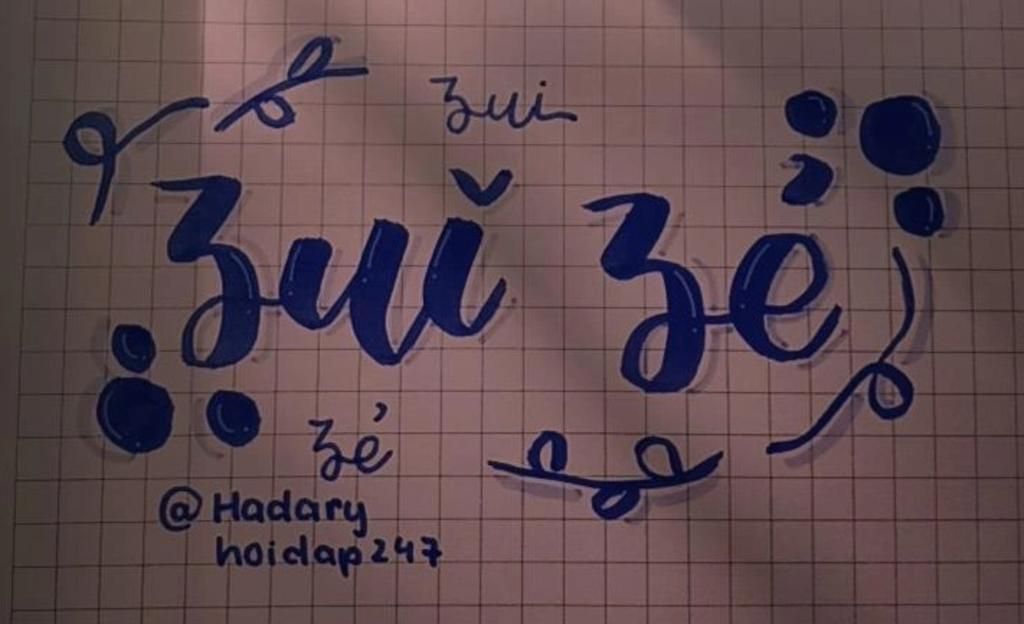 zui
zui zẻ
zẻ
@Hadary
hoidap247